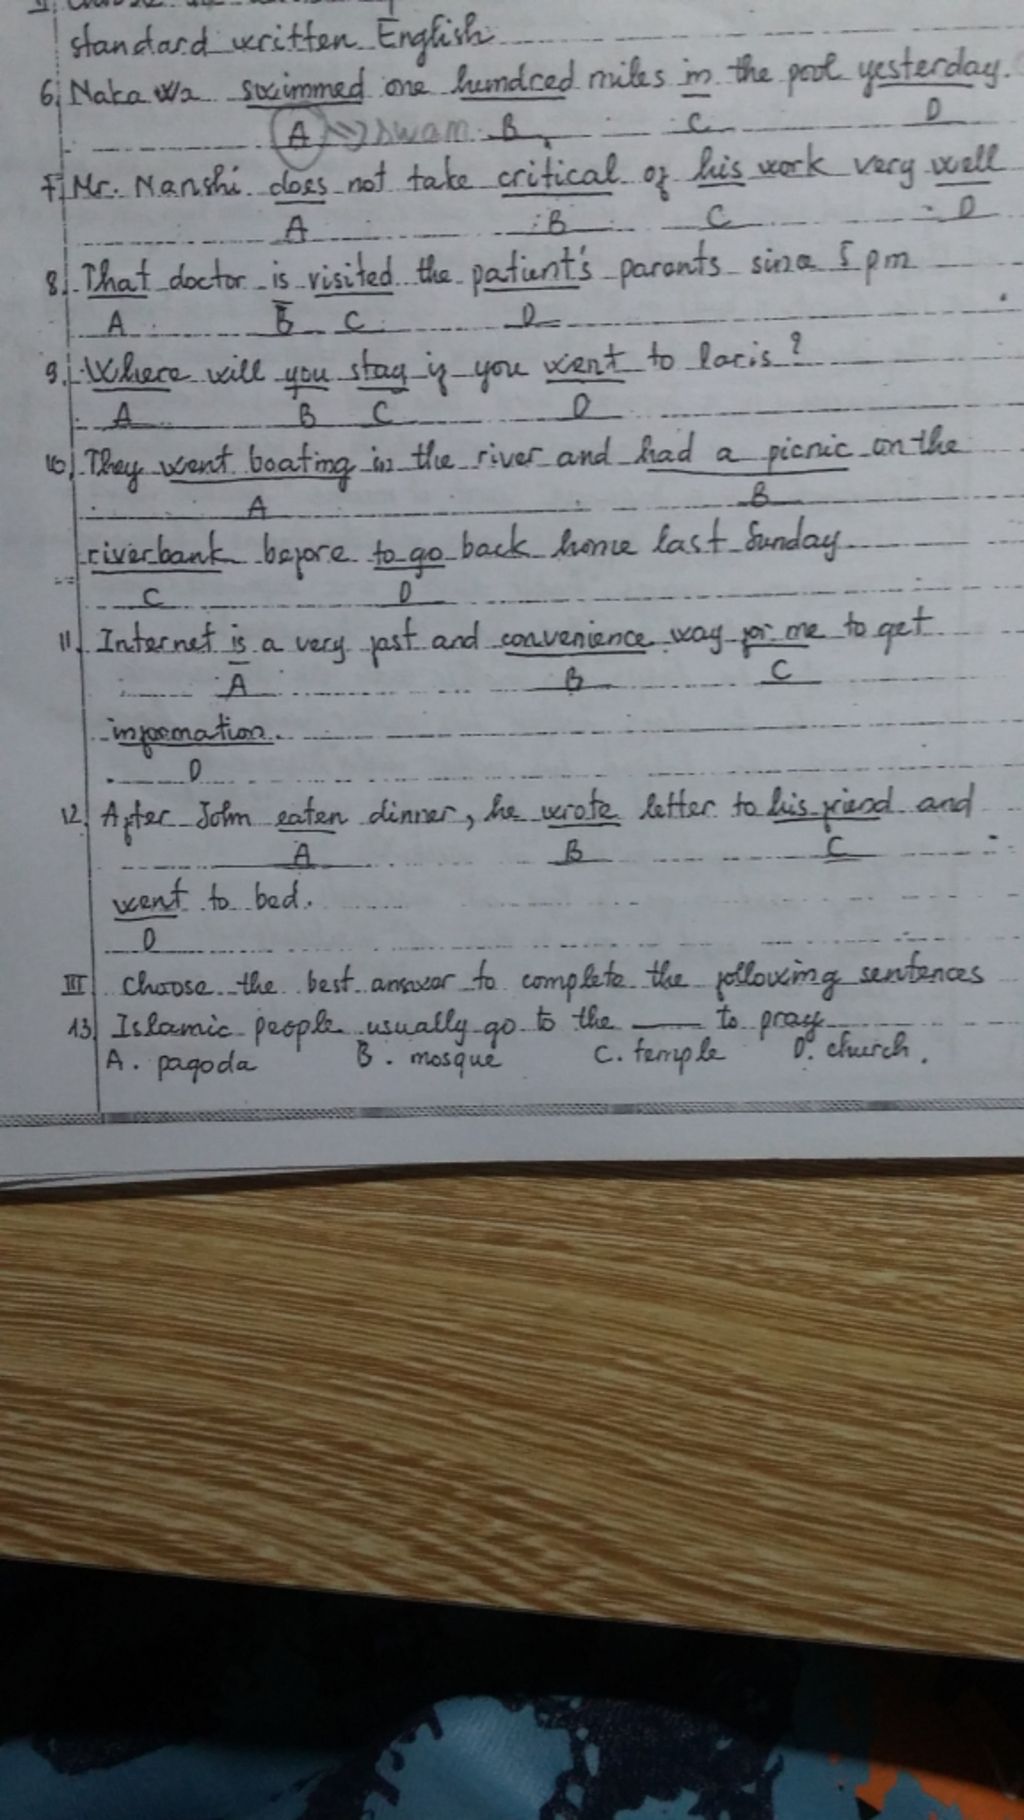 standard written English
6, Naka wa swimmed one hundred miles in the pool yesterday.
A => swam B C D
7, Mr. Nanshi does not take critical of his work very well
A B C D
8, That doctor is visited the patient's parents since 5 pm
A B C D
9, Where will you stay if you went to Paris?
A B C D
10, They went boating in the river and had a picnic on the
A B
riverbank before to go back home last Sunday
C D
11, Internet is a very fast and convenience way for me to get
A B C
information.
D
12, After John eaten dinner, he wrote letter to his friend and
A B C
went to bed.
D
III choose the best answer to complete the following sentences
13, Islamic people usually go to the ____ to pray
A. pagoda B. mosque C. temple D. church.